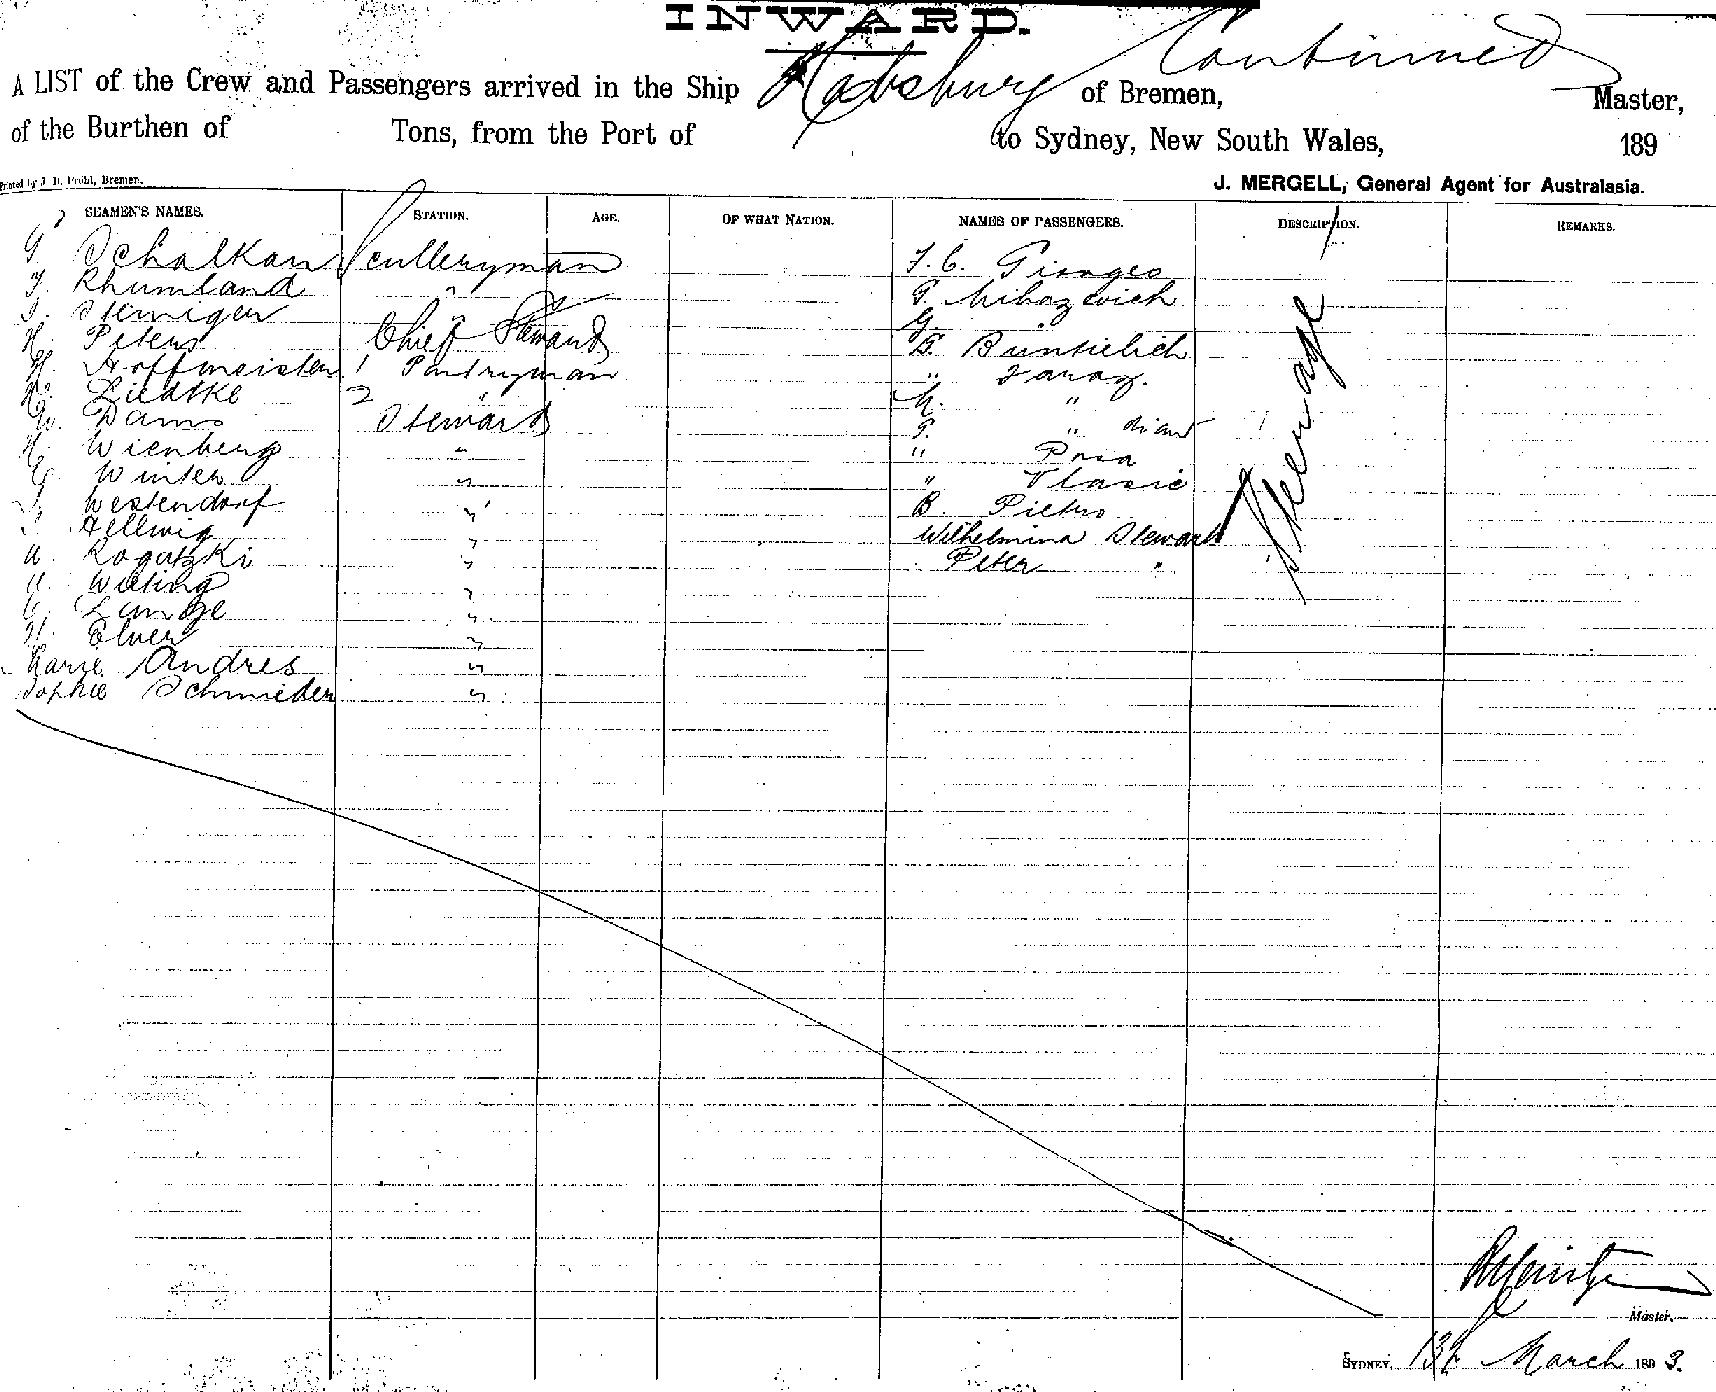 INWARD.
Continued
A LIST of the Crew and Passengers arrived in the Ship Habsburg of Bremen, Master,
of the Burthen of Tons, from the Port of to Sydney, New South Wales, 189
Printed by J. H. Pröhl, Bremen.
J. MERGELL, General Agent for Australasia.
SEAMEN'S NAMES. STATION. AGE. OF WHAT NATION. NAMES OF PASSENGERS. DESCRIPTION. REMARKS.
G. Schalkan Sculleryman F. C. Gionges
F. Rhumland " P. Mihozevich
Steniger " G.
H. Peters Chief Steward B. Buntielich
H. Hoffmeister 1 Pantryman " Faraz.
Liedtke 2 " M. "
W. Dams Steward P. " dian
H. Wienberg " " Poia
G. Winter " " Vlasic
Westendorf " B. Pietro
Hellwig " Wilhelmina Stewart
A. Rogatzki " Peter "
A. Wilting "
C. Lange "
H. Elver "
Marie Andres "
Sophie Schmieder "
Steerage
Master.
SYDNEY, 13th March 1893.